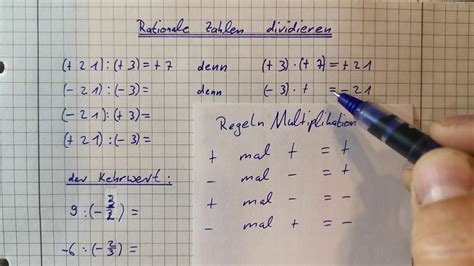 Rationale Zahlen dividieren
(+21):(+3)=+7 denn (+3)·(+7)=+21
(-21):(-3)= denn (-3)·+ =-21
(-21):(+3)=
(+21):(-3)=
Regeln Multiplikation
+ mal + = +
- mal - = +
+ mal - = -
- mal + = -
der Kehrwert:
9:(- )=
-6:(-2/3)=